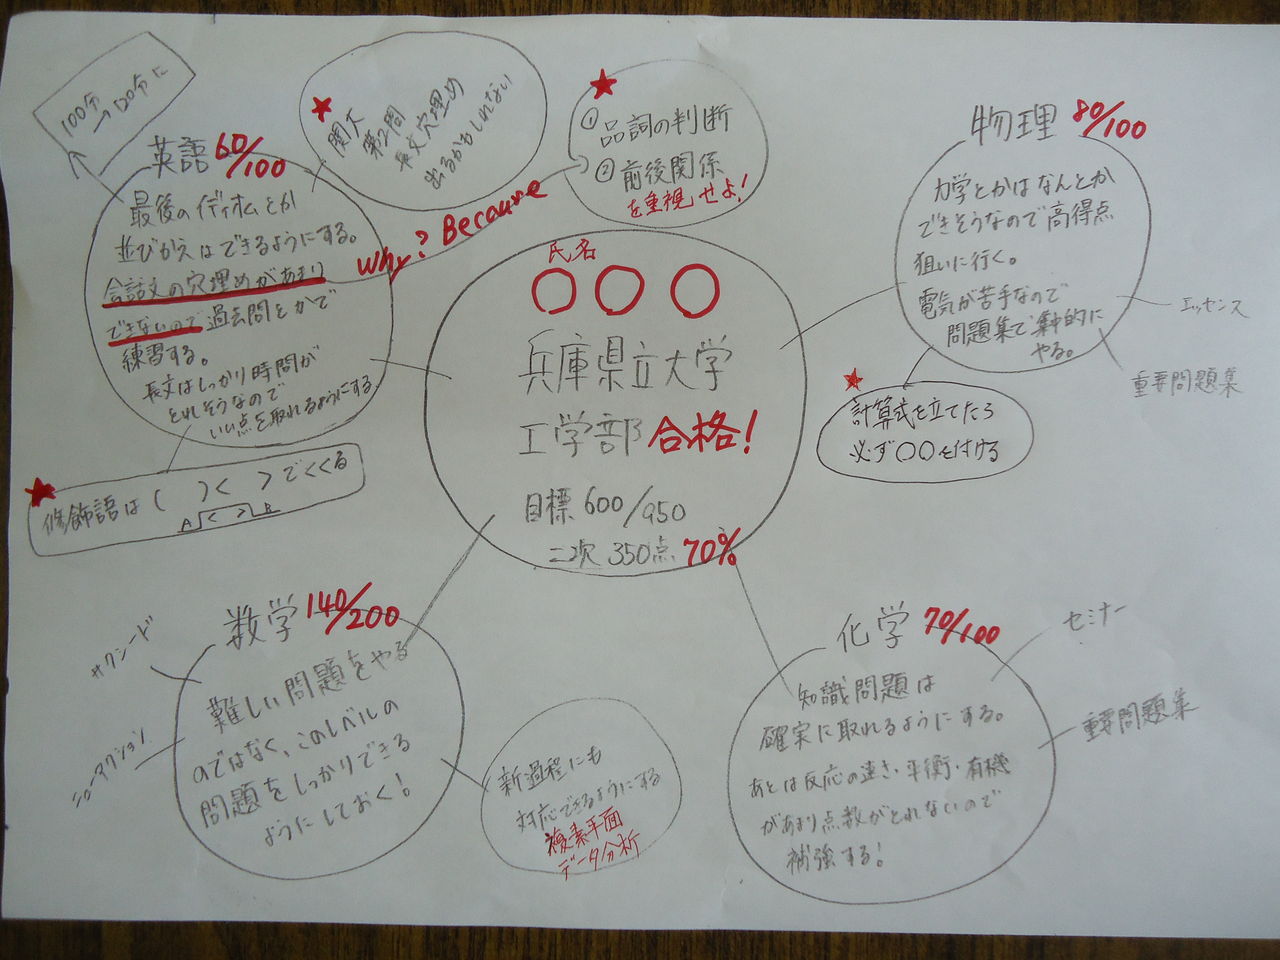 100分
→120分に
英語 60/100
最後のイディオムとか
並びかえはできるようにする。
会話文の穴埋めがあまり
できないので過去問とかで
練習する。
長文はしっかり時間が
とれそうなので
いい点を取れるようにする
★
修飾語は( )< >でくくる
A < > B
★
関大
第2問
長文穴埋め
出るかもしれない
Why? Because
★
① 品詞の判断
② 前後関係
を重視せよ!
氏名
○○○
兵庫県立大学
工学部 合格!
目標 600/950
二次 350点 70%
物理 80/100
力学とかはなんとか
できそうなので高得点
狙いに行く。
電気が苦手なので
問題集で集中的に
やる。
エッセンス
重要問題集
★
計算式を立てたら
必ず○○を付ける
数学 140/200
難しい問題をやる
のではなく、このレベルの
問題をしっかりできる
ようにしておく!
サクシード
ニューアクション
新過程にも
対応できるようにする
複素平面
データ分析
化学 70/100
知識問題は
確実に取れるようにする。
あとは反応の速さ・平衡・有機
があまり点数がとれないので
補強する!
セミナー
重要問題集